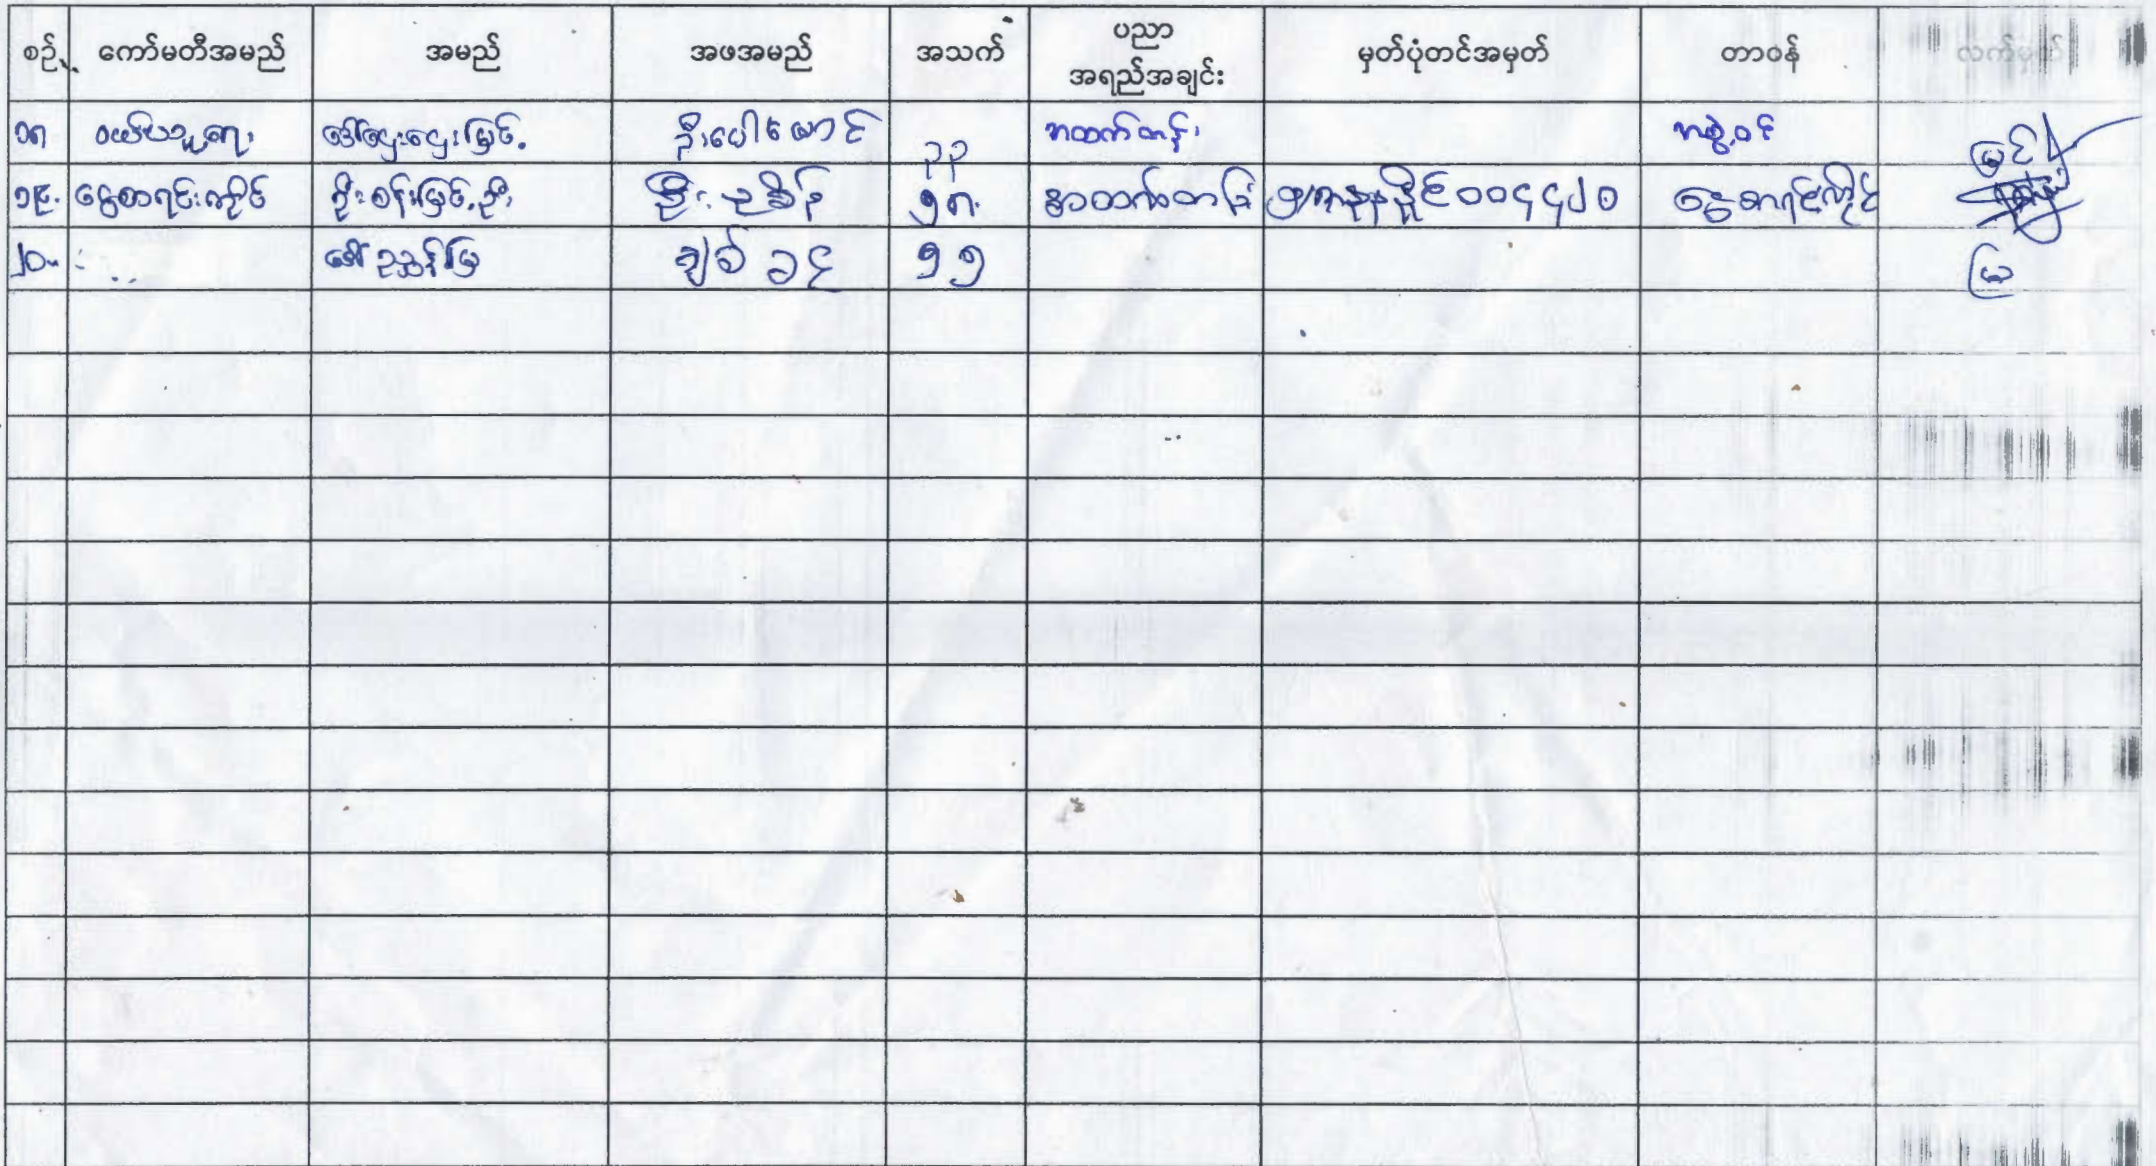 စဉ် ကော်မတီအမည် အမည် အဖအမည် အသက် ပညာ အရည်အချင်း မှတ်ပုံတင်အမှတ် တာဝန် လက်မှတ်
၁၈ ဝယ်ယူရေး ဒေါ်ဌေးဌေးမြင့် ဦးပေါ်မောင် ၃၃ အထက်တန်း အဖွဲ့ဝင် မြင့်
၁၉. ငွေစာရင်းကိုင် ဦးစန်းမြင့်ဦး ဦး ၅၈. အထက်တန်း ၀၀၄၄၂၀ ငွေစာရင်းကိုင်
၂၀. ဒေါ်ညွန့်မြ ချစ် ၅၅ မြ